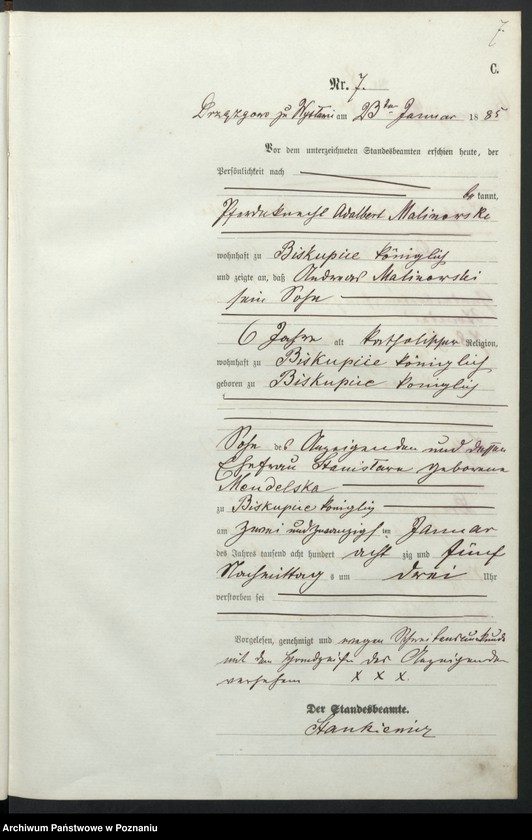 7.
C.
Nr. 7.
am 23ten Januar 1885
Vor dem unterzeichneten Standesbeamten erschien heute, der
Persönlichkeit nach
bekannt,
Pferdeknecht Adalbert Malinorski
wohnhaft zu Biskupice königlich
und zeigte an, daß Andreas Malinorski
sein Sohn
6 Jahre alt katholischer Religion,
wohnhaft zu Biskupice königlich
geboren zu Biskupice königlich
Sohn des Anzeigenden und dessen
Ehefrau Stanislava geborene
Mendelska
zu Biskupice königlig
am zwei und zwanzigsten Januar
des Jahres tausend acht hundert acht zig und fünf
Nachmittags um drei Uhr
verstorben sei
Vorgelesen, genehmigt und wegen Schreibensunkunde
mit dem Handzeichen des Anzeigenden
versehen x x x.
Der Standesbeamte.
Stankiewicz
Archiwum Państwowe w Poznaniu